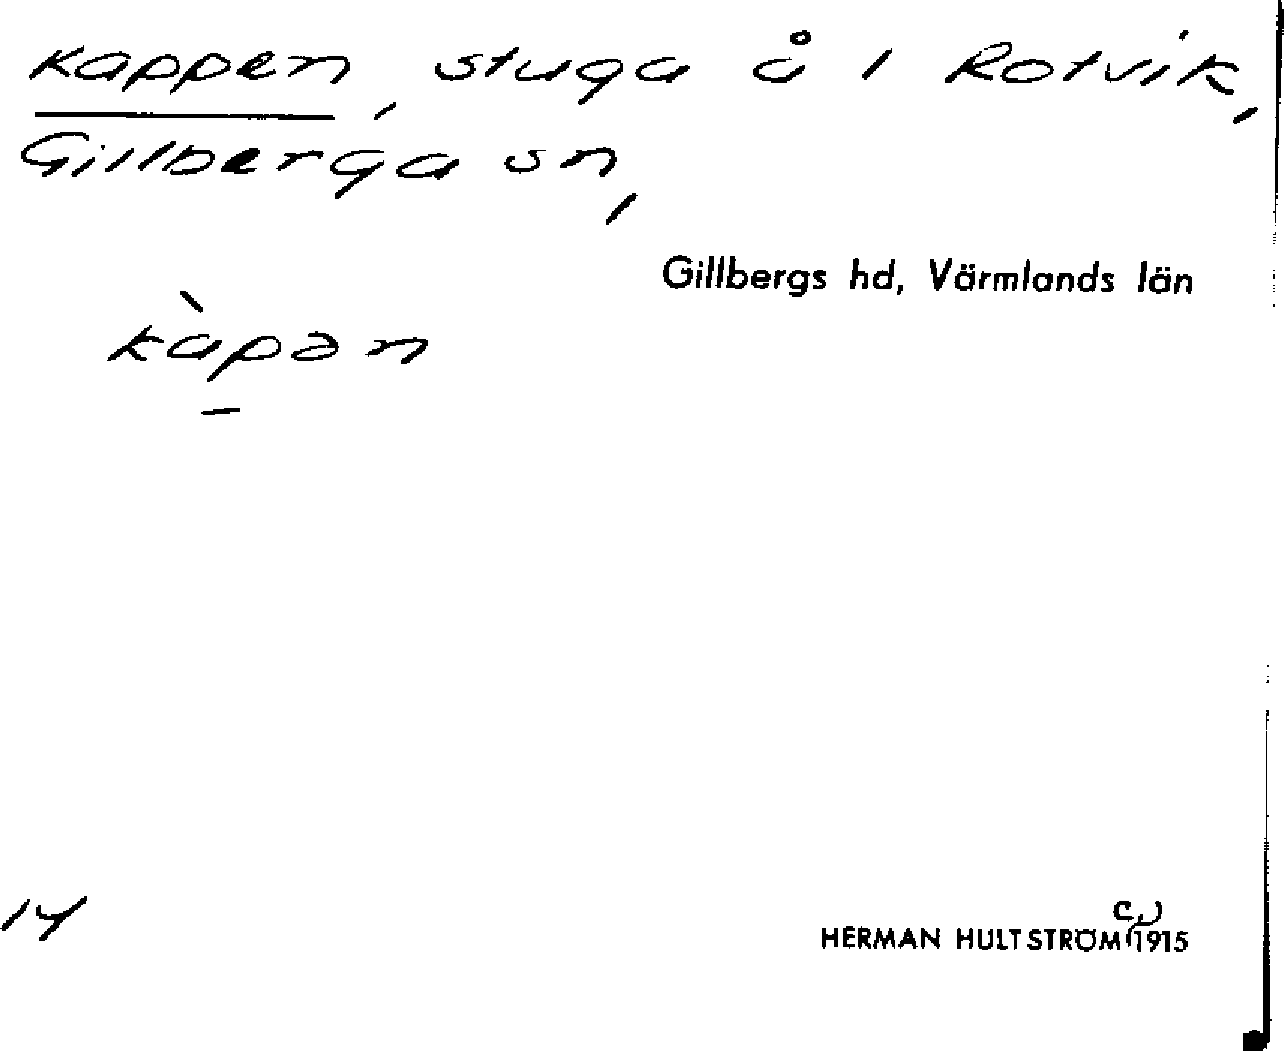 Kappen, stuga å i Rotvik,
Gillberga sn,
Gillbergs hd, Värmlands län
kàpan
14
c.
HERMAN HULTSTRÖM (1915